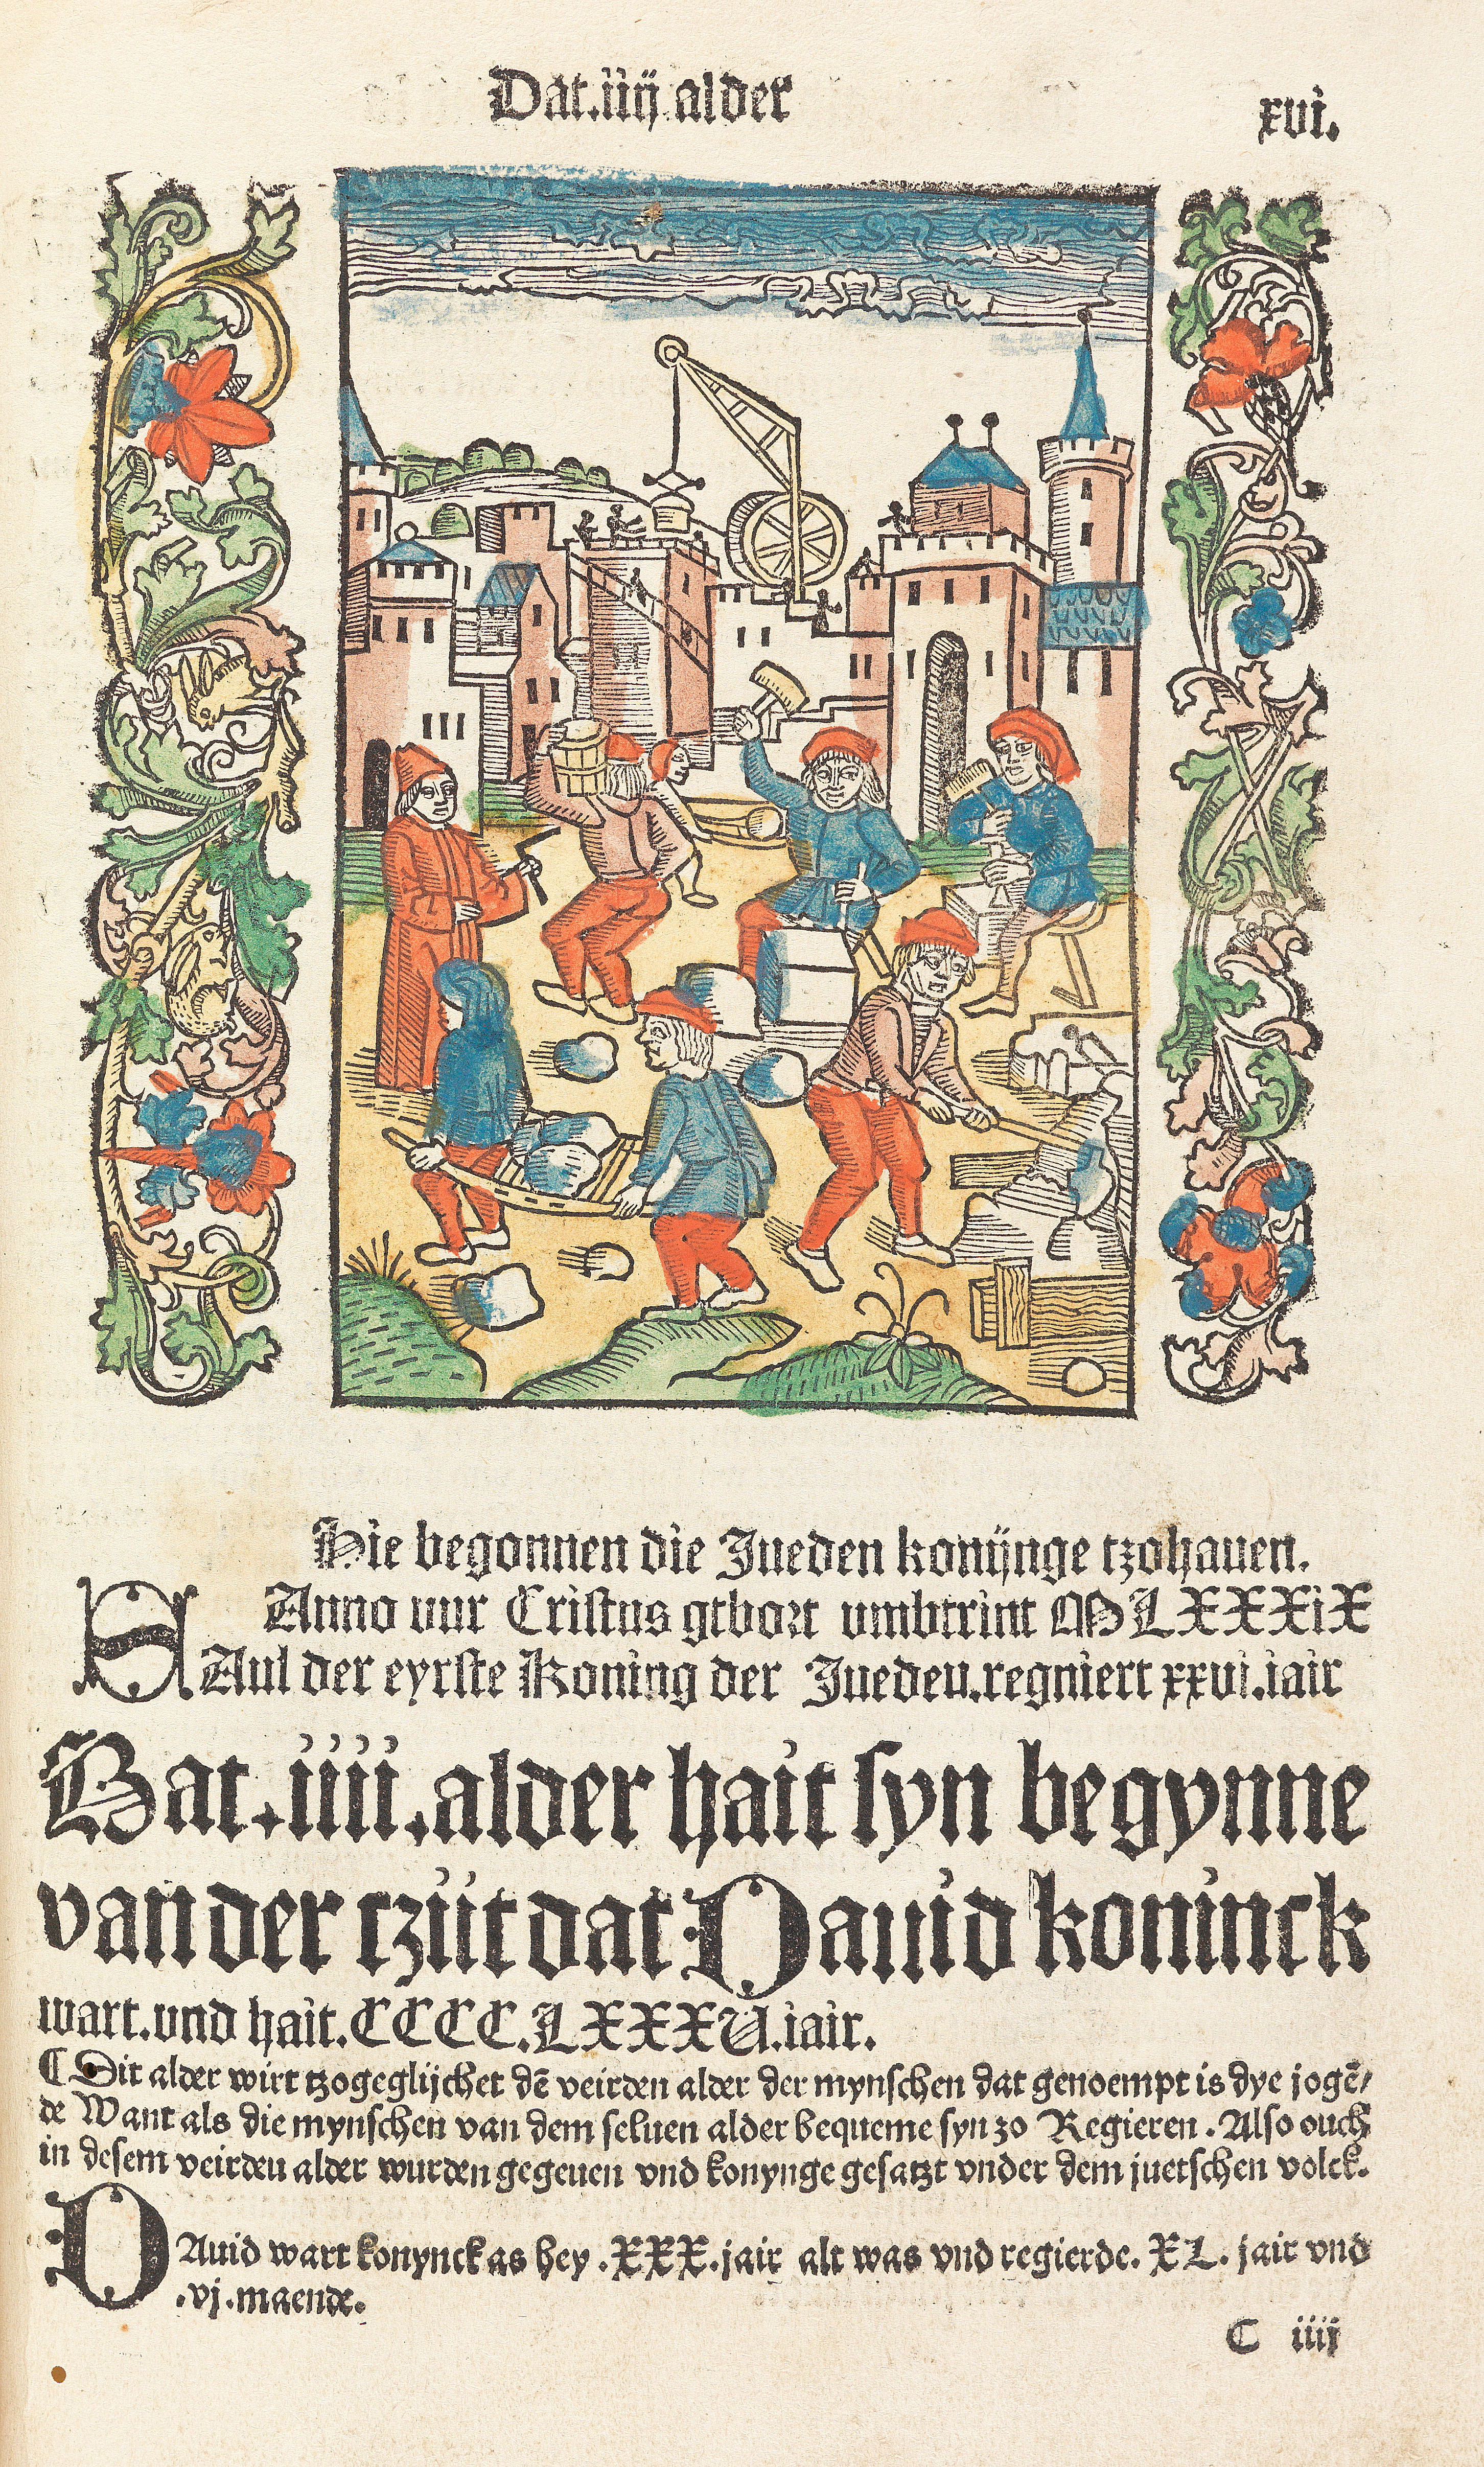 Dat.iiij.alder
xvi.
Hie begonnen die Jueden konijnge tzohauen.
Anno vur Cristus gebort vmbtrint MLXXXiX
SAul der eyrste Koning der Jueden.regniert xxvi.iair
Dat.iiii.alder hait syn begynne
van der tzijt dat Dauid koninck
wart.vnd hait.CCCC.LXXXV.iair.
¶ Dit alder wirt tzogeglijchet dē veirden alder der mynschen dat genoempt is dye jogē/
de Want als die mynschen van dem seluen alder bequeme syn zo Regieren. Also ouch
in desem veirden alder wurden gegeuen vnd konynge gesatzt vnder dem juetschen volck.
DAuid wart konynck as hey .XXX.jair alt was vnd regierde. XL. jair vnd
.vj.maende.
C iiij